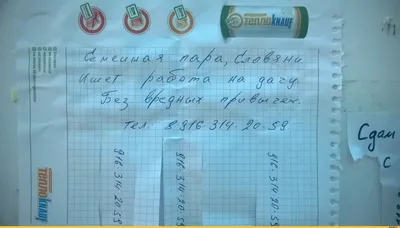 ТеплоKNAUF
Семейная пара, Славяни
Ишет работа на дачу.
Без вредных привычек.
Тел. 8 916-314-20-59
ТеплоKNAUF
916-314 20.59
916-314-20-59
916-314-20-59
Сдам
с